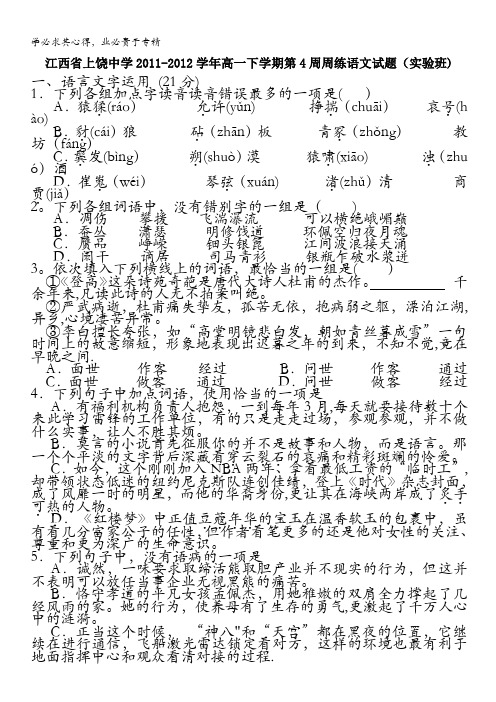 学必求其心得，业必贵于专精
江西省上饶中学2011-2012学年高一下学期第4周周练语文试题（实验班）
一、语言文字运用 (21 分)
1．下列各组加点字读音读音错误最多的一项是(      )
A．猿猱(ráo)      允许(yǔn)      挣揣（chuāi）      哀号(h
ào)
B．豺(cái) 狼      砧（zhān）板      青冢（zhǒng）      教
坊（fáng）
C．觱发(bìng）      朔(shuò）漠      猿啸(xiāo)      浊（zhu
ó）酒
D．崔嵬（wéi）      琴弦（xuán)      渚(zhǔ）清      商
贾(jiǎ）
2。下列各组词语中，没有错别字的一组是（      ）
A．凋伤      攀援      飞湍瀑流      可以横绝峨嵋巅
B．蚕丛      潇瑟      明修伐道      环佩空归夜月魂
C．赝品      峥嵘      钿头银篦      江间波浪接天涌
D．阑干      谪居      司马青衫      银瓶乍破水浆迸
3。依次填入下列横线上的词语，最恰当的一组是(      )
①《登高》这朵诗苑奇葩是唐代大诗人杜甫的杰作。__________ 千
余年来,凡读此诗的人无不拍案叫绝。
②严武病逝，杜甫痛失挚友，孤苦无依，抱病弱之躯，漂泊江湖,
异乡____，心境凄苦异常。
③李白擅长夸张，如“高堂明镜悲白发，朝如青丝暮成雪”一句
时间上的故意缩短，形象地表现出迟暮之年的到来，不知不觉,竟在
早晚之间．
A．面世      作客      经过      B．问世      作客      通过
C．面世      做客      通过      D．问世      做客      经过
4．下列句子中加点词语，使用恰当的一项是
A．有福利机构负责人抱怨，一到每年 3 月,每天就要接待数十个
来此学习雷锋的工作单位，有的只是走走过场，参观参观，并不做
什么实事，让人不胜其烦。
B．莫言的小说首先征服你的并不是故事和人物，而是语言。那
一个个平淡的文字背后深藏着穿云裂石的哀痛和精彩斑斓的怜爱。
C．如今，这个刚刚加入 NBA 两年、拿着最低工资的“临时工”，
却带领状态低迷的纽约尼克斯队连创佳绩，登上《时代》杂志封面，
成了风靡一时的明星，而他的华裔身份,更让其在海峡两岸成了炙手
可热的人物。
D．《红楼梦》中正值豆蔻年华的宝玉在温香软玉的包裹中，虽
有着几分富家公子的任性，但作者着笔更多的还是他对女性的关注、
尊重和更为深广的生命意识。
5．下列句子中，没有语病的一项是
A．诚然，一味要求取缔活熊取胆产业并不现实的行为，但这并
不表明可以放任当事企业无视黑熊的痛苦。
B．恪守孝道的平凡女孩孟佩杰，用她稚嫩的双肩全力撑起了几
经风雨的家。她的行为，使养母有了生存的勇气,更激起了千万人心
中的涟漪。
C．正当这个时候，“神八"和“天宫”都在黑夜的位置，它继
续在进行通信，飞船激光雷达锁定着对方，这样的环境也最有利于
地面指挥中心和观众看清对接的过程.